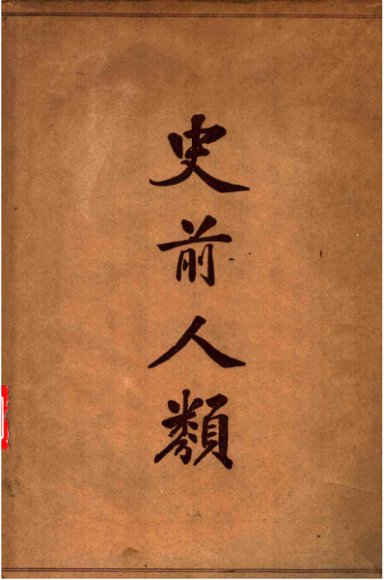 史前人類